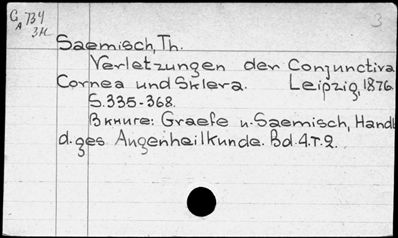 G 734
A 3н
3
Saemisch, Th.
Verletzungen der Conjunctiva
Cornea und Sklera. Leipzig, 1876.
S. 335-368.
Вкниге: Graefe u. Saemisch, Handb
d. ges Augenheilkunde. Bd. 4. T. 2.